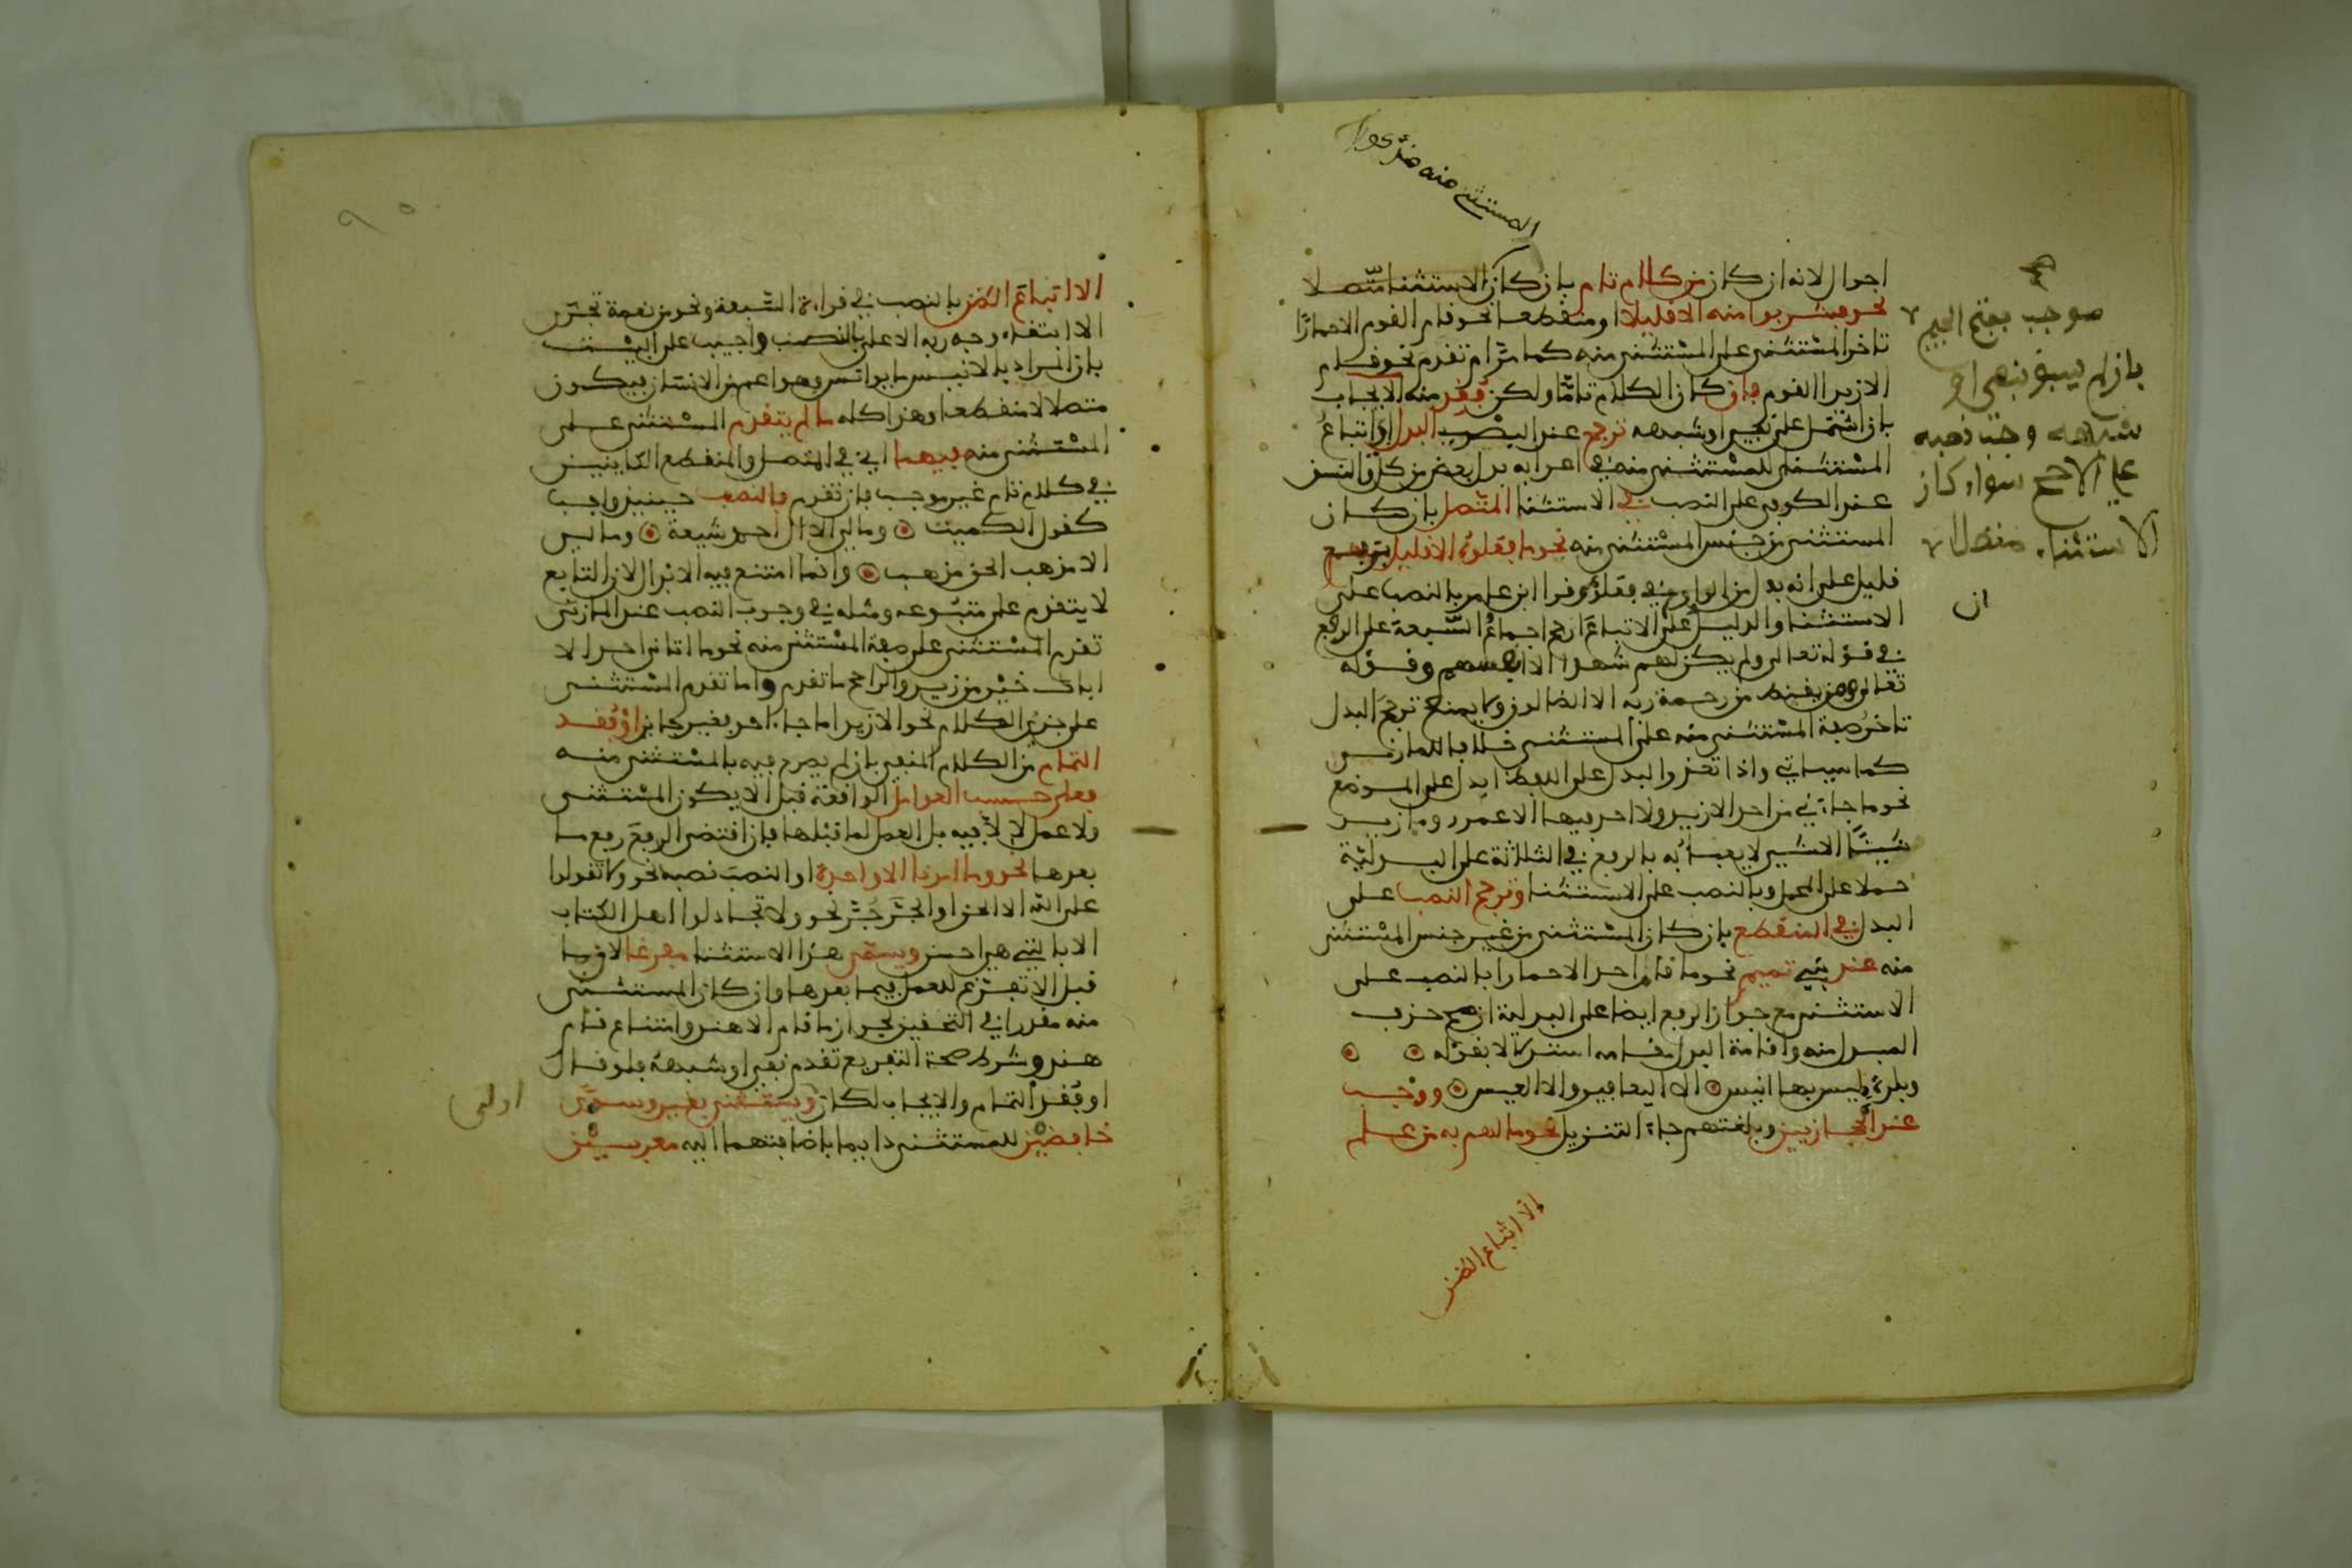 المستثنى منه
احوال لانه ان كان من كلام تام بان كان الاستثنا متصلا
نحو فشربوا منه الا قليلا او منقطعا نحو قام القوم الا حمارا
تاخر المستثنى على المستثنى منه كما مر ام تقدم نحو قام
الا زيدا القوم فان كان الكلام تاما ولكن فقد منه الايجاب
بان اشتمل على نفي او شبهه ترجح عند البصريين البدل اي اتباع
المستثنى للمستثنى منه في اعرابه بدل بعض من كل والنسق
عند الكوفي على النصب في الاستثنا المتصل بان كان
المستثنى من جنس المستثنى منه نحو ما فعلوه الا قليل برفع
قليل على انه بدل من الواو في فعلوه وقرا ابن عامر بالنصب على
الاستثنا والدليل على ان الاتباع ارجح اجماع السبعة على الرفع
في قوله تعالى ولم يكن لهم شهدا الا انفسهم وقوله
تعالى ومن يقنط من رحمة ربه الا الضالون ولا يمنع ترجح البدل
تاخر صفة المستثنى منه على المستثنى خلافا للمازني
كما سياتي واذا تعذر البدل على اللفظ ابدل على الموضع
نحو ما جاءني من احد الا زيد ولا احد فيها الا عمرو وما زيد
شيئا الا شيء لا يعبا به بالرفع في الثلاثة على البدلية
حملا على المحل وبالنصب على الاستثنا وترجح النصب على
البدل في المنقطع بان كان المستثنى من غير جنس المستثنى
منه عند بني تميم نحو ما قام احد الا حمارا بالنصب على
الاستثنى مع جواز الرفع ايضا على البدلية ان صح حذف
المبدل منه واقامة البدل مقامه استدلالا بقوله
وبلدة ليس بها انيس الا اليعافير والا العيس ووجب
عند الحجازيين وبلغتهم جاء التنزيل نحو ما لهم به من علم
الا اتباع الظن
موجب بفتح الجيم
بان لم يسبق بنفي او
شبهه وجب نصبه
على الاصح سواء كان
الاستثناء متصلا
ان
الا اتباع الظن بالنصب في قراءة السبعة ونحو من نعمة تجزى
الا ابتغاء وجه ربه الاعلى بالنصب واجيب على البيت
بان المراد بالانيس ما يوانس وهو اعم من الانسان فيكون
متصلا لا منقطعا وهذا كله ما لم يتقدم المستثنى على
المستثنى منه فيهما اي في المتصل والمنقطع الكاينين
في كلام تام غير موجب فان تقدم فالنصب حينيذ واجب
كقول الكميت وما لي الا ال احمد شيعة وما لي
الا مذهب الحق مذهب وانما امتنع فيه الابدال لان التابع
لا يتقدم على متبوعه ومثله في وجوب النصب عند المازني
تقدم المستثنى على صفة المستثنى منه نحو ما اتاني احد الا
اباك خير من زيد والراجح ما تقدم واما تقدم المستثنى
على جزئي الكلام نحو الا زيدا ما جاء احد فغير جايز او فقد
التمام من الكلام المنفي بان لم يصرح فيه بالمستثنى منه
فعلى حسب العوامل الواقعة قبل الا يكون المستثنى
ولا عمل لالا فيه بل العمل لما قبلها فان اقتضى الرفع رفع ما
بعدها نحو وما امرنا الا واحدة او النصب نصبه نحو ولا تقولوا
على الله الا الحق او الجر جر نحو ولا تجادلوا اهل الكتاب
الا بالتي هي احسن ويسمى هذا الاستثنا مفرغا لان ما
قبل الا تفرغ للعمل فيما بعدها وان كان المستثنى
منه مقدرا في التحقيق لجواز ما قام الا هند وامتناع قام
هند وشرط صحة التفريع تقدم نفي او شبهه فلو قال
او فقد التمام والايجاب لكان اولى ويستثنى بغير وسوى
خافضين للمستثنى دايما باضافتهما اليه معربين